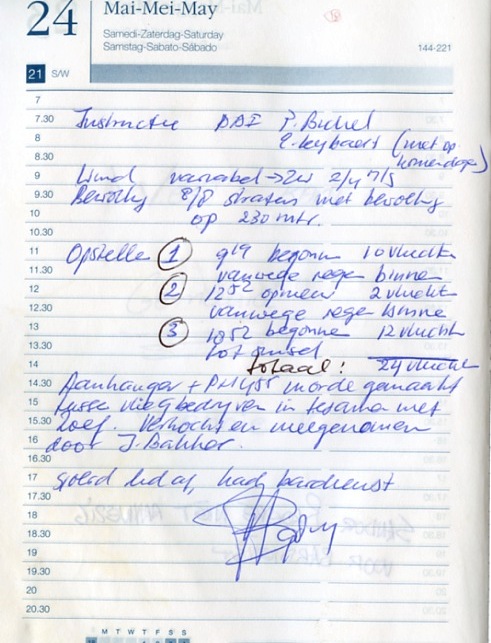 24 Mai-Mei-May
Samedi-Zaterdag-Saturday
Samstag-Sabato-Sábado
144-221
21 S/W
7
7.30 Instructie DBI P.
8 E. (niet op
8.30 komen dagen)
9 Wind variabel → ZW 2/4 m/s
9.30 Bewolkg 8/8 stratus met bewolkg
10 op 230 mtr.
10.30
11 Opstelle 1 9 19 begonn 10 vlucht
11.30 vanwege rege binne
12 2 12 52 opnieu 2 vlucht
12.30 vanwege rege binne
13 3 1852 begonne 12 vlucht
13.30 tot
14 totaal: 24 vlucht
14.30 Aanhanger + PH worde gemaakt
15 tusse vliegbedryven in met
15.30 Verkocht en meegenomen
16 door J. Bakker.
16.30
17 had bardienst
17.30
18
18.30
19
19.30
20
20.30
M T W T F S S